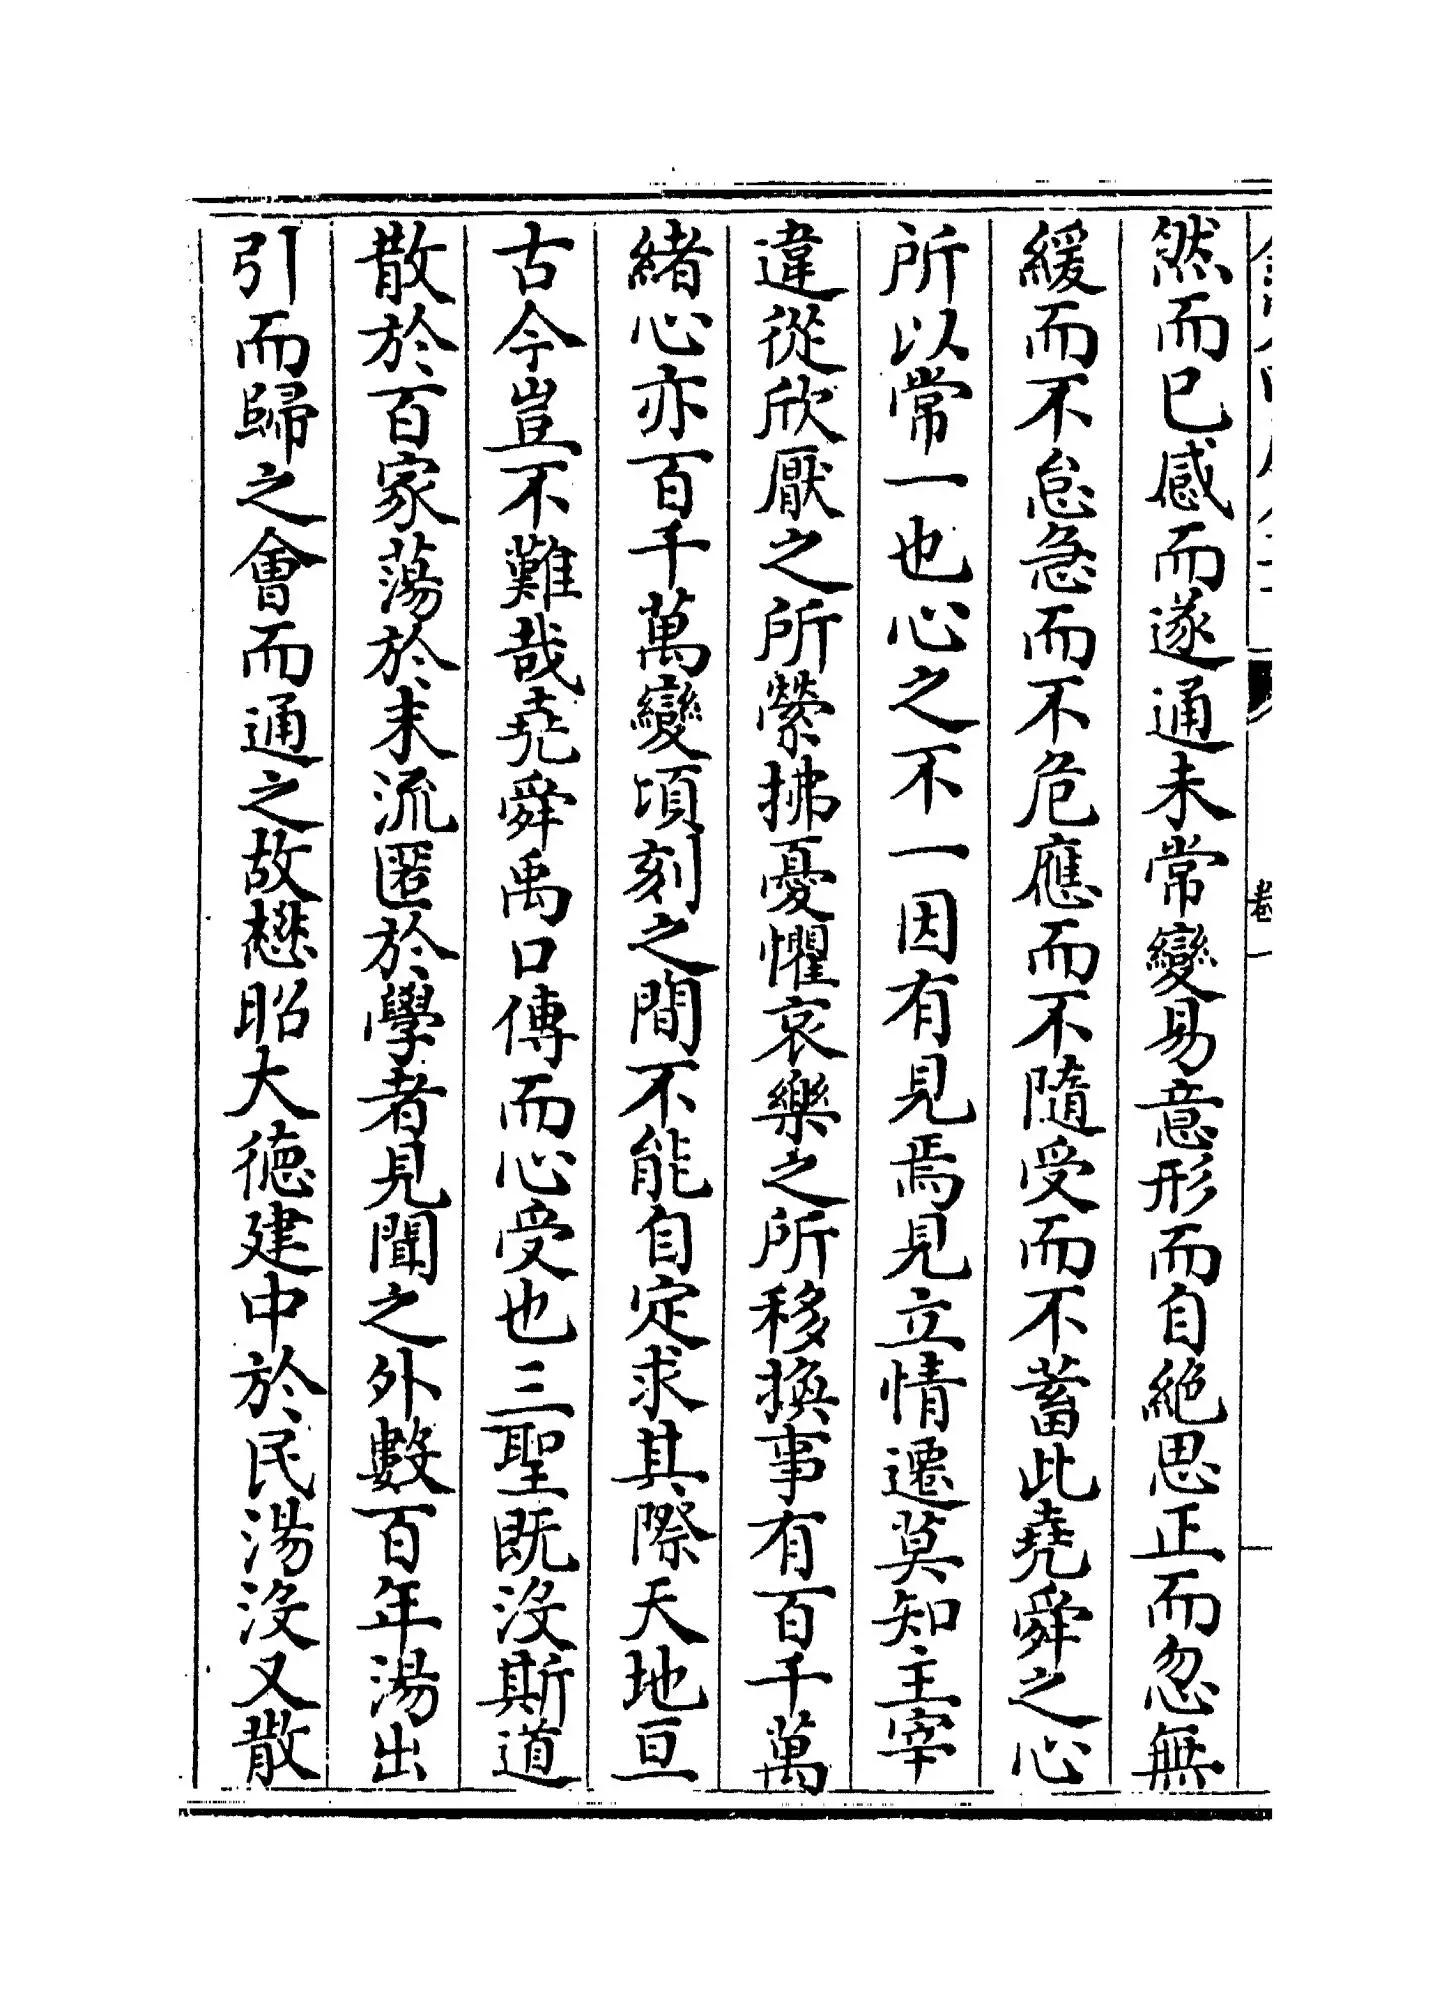 卷一
然而已感而遂通未常變易意形而自絶思正而忽無
緩而不怠急而不危應而不隨受而不蓄此堯舜之心
所以常一也心之不一因有見焉見立情遷莫知主宰
違從欣厭之所縈拂憂懼哀樂之所移換事有百千萬
緒心亦百千萬變頃刻之間不能自定求其際天地亘
古今豈不難哉堯舜禹口傳而心受也三聖既没斯道
散於百家蕩於末流匿於學者見聞之外數百年湯出
引而歸之會而通之故懋昭大徳建中於民湯没又散